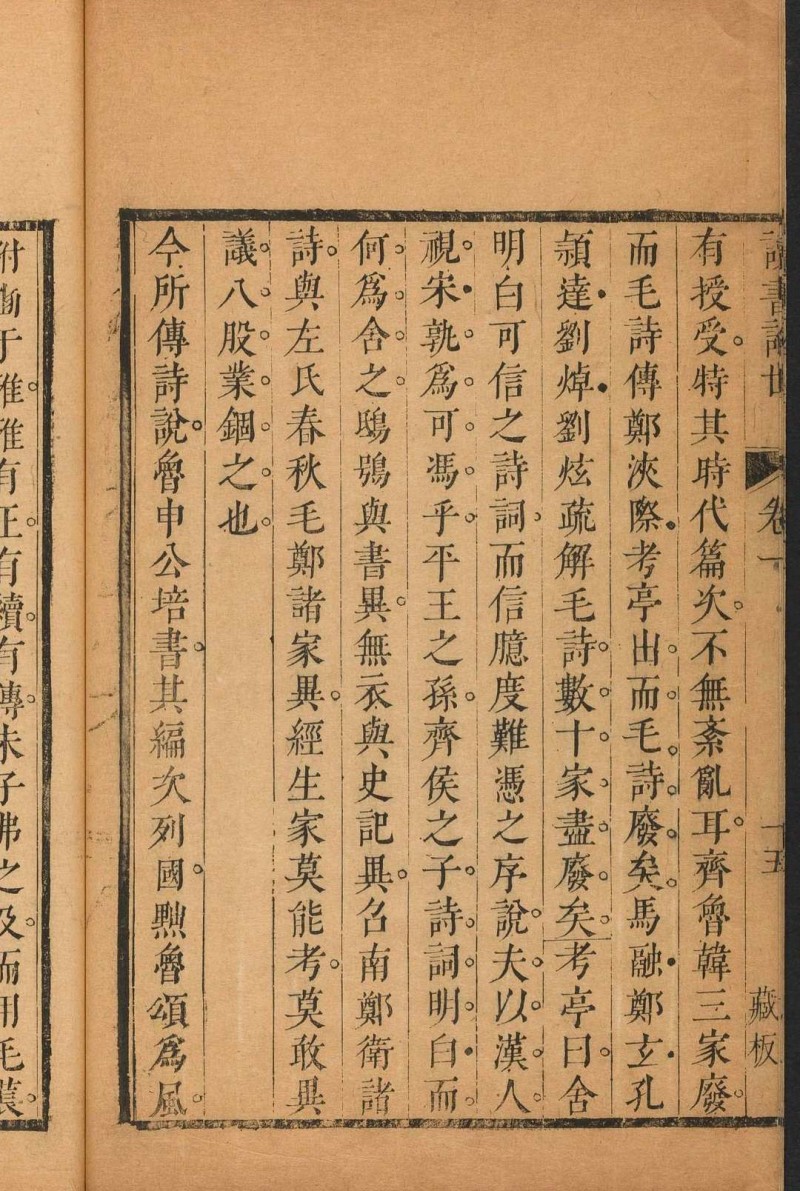 讀書論世　卷一　十五　藏板
有授受。特其時代篇次。不無紊亂耳。齊魯韓三家廢。
而毛詩傳鄭浹際考亭出。而毛詩廢矣。馬融鄭玄孔
頴達劉焯劉炫疏解毛詩數十家盡廢矣。考亭曰。舍
明白可信之詩詞。而信臆度難憑之序說。夫以漢人。
視宋孰為可馮乎。平王之孫。齊侯之子。詩詞明白而
何為舍之。鴟鴞與書異。無衣與史記異。召南鄭衛諸
詩。與左氏春秋毛鄭諸家異。經生家莫能考。莫敢異
議。八股業錮之也。
今所傳詩說。魯申公培書。其編次列國。黜魯頌為風。
于雅。雅有正。有續。有傳。朱子弗之及。而用毛萇。